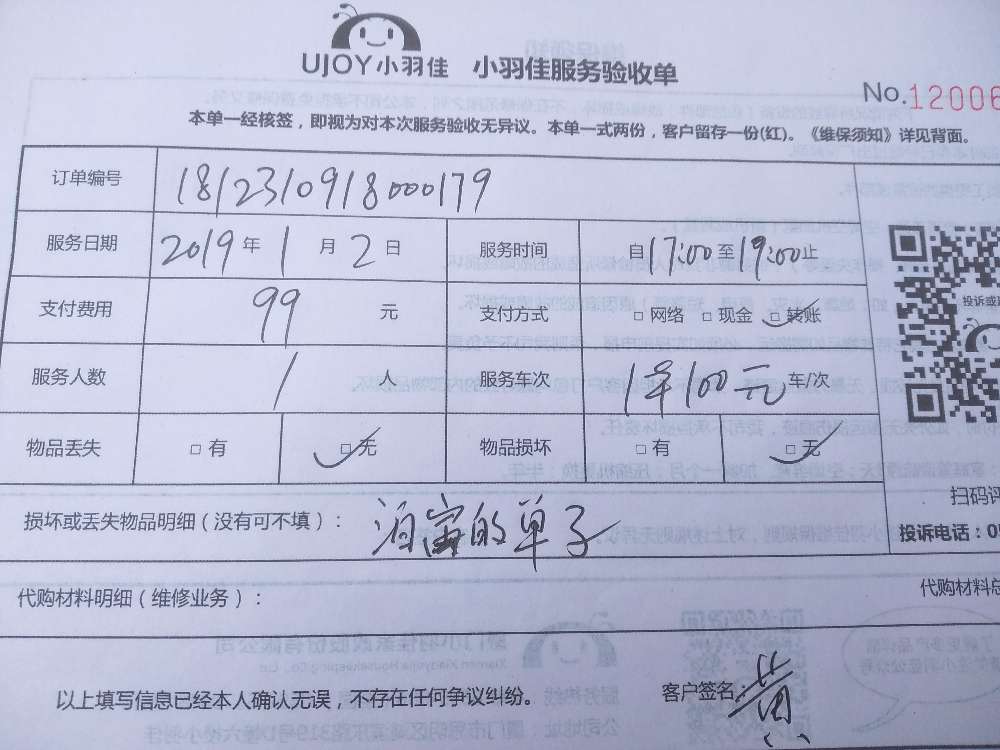 UJOY小羽佳 小羽佳服务验收单
No.12006
本单一经核签，即视为对本次服务验收无异议。本单一式两份，客户留存一份(红)。《维保须知》详见背面。
订单编号 1812310918000179
服务日期 2019年1月2日 服务时间 自17:00至19:00止
投诉或
支付费用 99元 支付方式 □网络 □现金 □转账
服务人数 1人 服务车次 1年100元车/次
物品丢失 □有 □无 物品损坏 □有 □无
扫码评
损坏或丢失物品明细（没有可不填）： 泊宙的单子
投诉电话：05
代购材料明细（维修业务）： 代购材料总
以上填写信息已经本人确认无误，不存在任何争议纠纷。 客户签名 黄